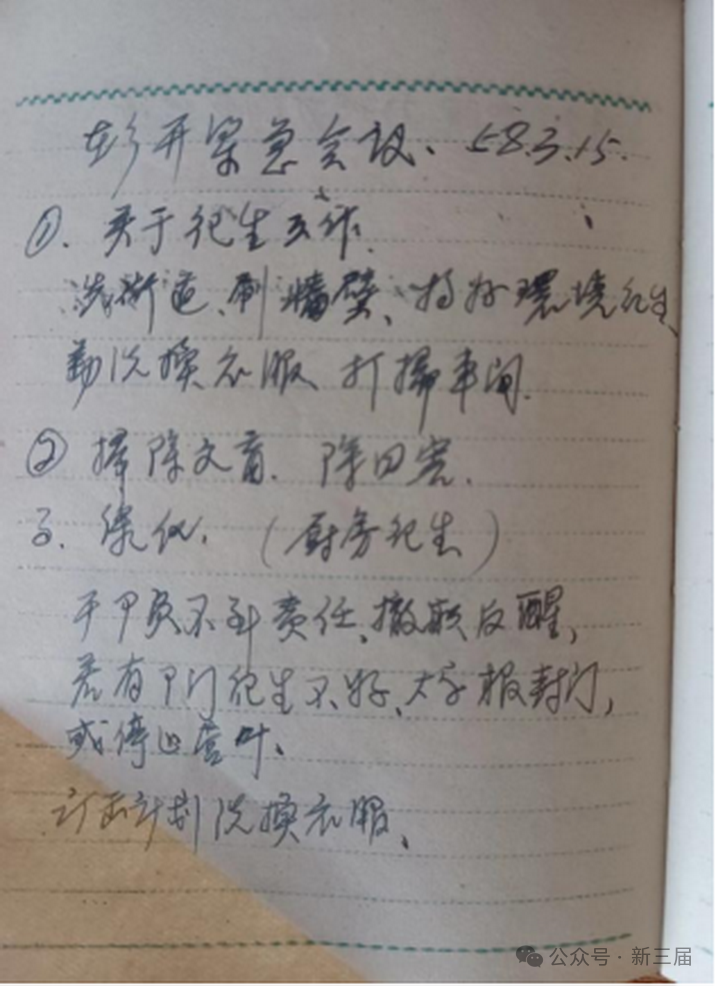 彭开紧急会议. 58.3.15.
①. 关于卫生工作.
洗街道、刷牆壁、搞好環境卫生、
勤洗换衣服 打掃車间.
② 掃除文盲. 除四害.
3. (厨房卫生)
干卩员不负责任、撤职反醒,
若有卩门卫生不好、大字报封门,
或停止营叶、
订出计划洗换衣服、
公众号·新三届